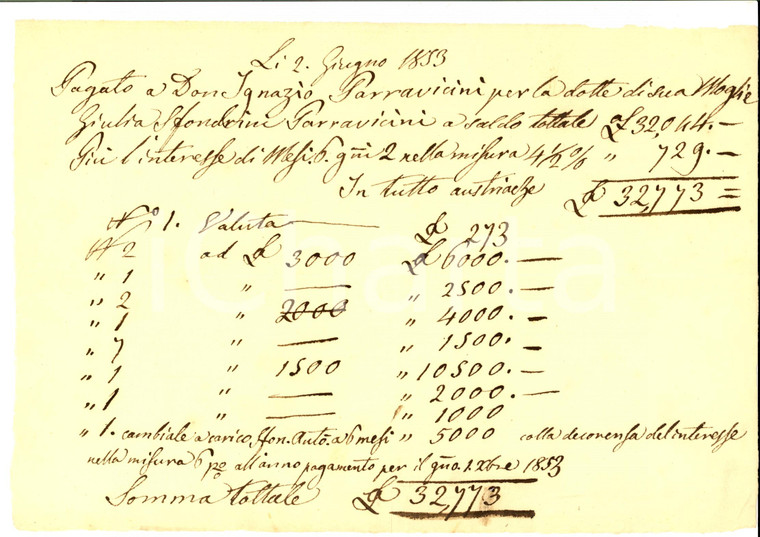 Li 2. Giugno 1853
Pagato a Don Ignazio Parravicini per la dotte di sua Moglie
Giulia Sfondrini Parravicini a saldo tottale £ 32,044. —
Più l'interesse di Mesi 6. gni 2 nella misura 4 1/2 % " 729. —
In tutto austriache £ 32,773 =
N° 1. Valuta — £ 273
N 2 ad £ 3000 £ 6000. —
" 1 " — " 2500. —
" 2 " 2000 " 4000. —
" 1 " — " 1500. —
" 7 " 1500 " 10500. —
" 1 " — " 2000. —
" 1 " — " 1000
" 1. cambiale a carico Sfon. Anto. a 6 mesi " 5000 colla decorensa del interesse
nella misura 6 p% all'anno pagamento per il gno. 1. Xbre 1853
Somma tottale £ 32,773